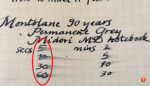 Montblanc 90 years
Permanent Grey
Midori MD Notebook
secs 5 mins 2
10 5
30 10
60 30